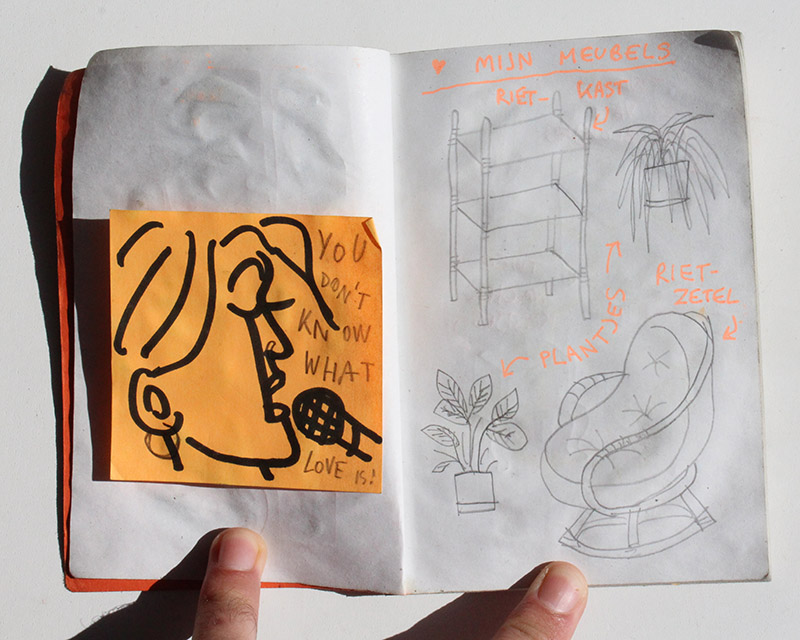 YOU
DON'T
KNOW
WHAT
LOVE IS!
♥ MIJN MEUBELS
RIET- KAST
RIET-
ZETEL
PLANTJES